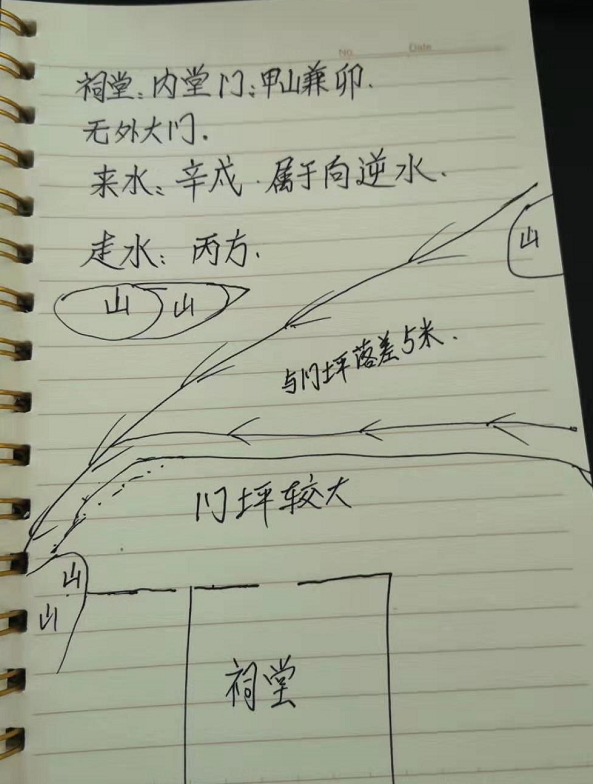 No.
Date
祠堂：内堂门：甲山兼卯．
无外大门．
来水：辛戌．属于向逆水．
走水：丙方．
山
山 山
与门坪落差5米．
门坪较大
山
山
祠堂